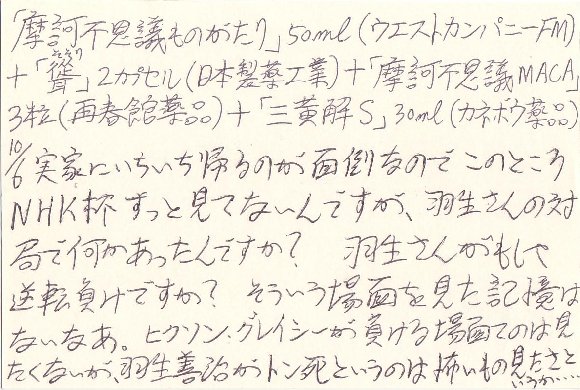 「摩訶不思議ものがたり」50ml(ウエストカンパニーFM)
+「聳(そそり)」2カプセル(日本製薬工業)+「摩訶不思議MACA」
3粒(再春館薬品)+「三黄解S」30ml(カネボウ薬品)
10/6 実家にいちいち帰るのが面倒なのでこのところ
NHK杯ずっと見てないんですが、羽生さんの対
局で何かあったんですか? 羽生さんがもしや
逆転負けですか? そういう場面を見た記憶は
ないなあ。ヒクソン・グレイシーが負ける場面てのは見
たくないが、羽生善治がトン死というのは怖いもの見たさと
いうか…